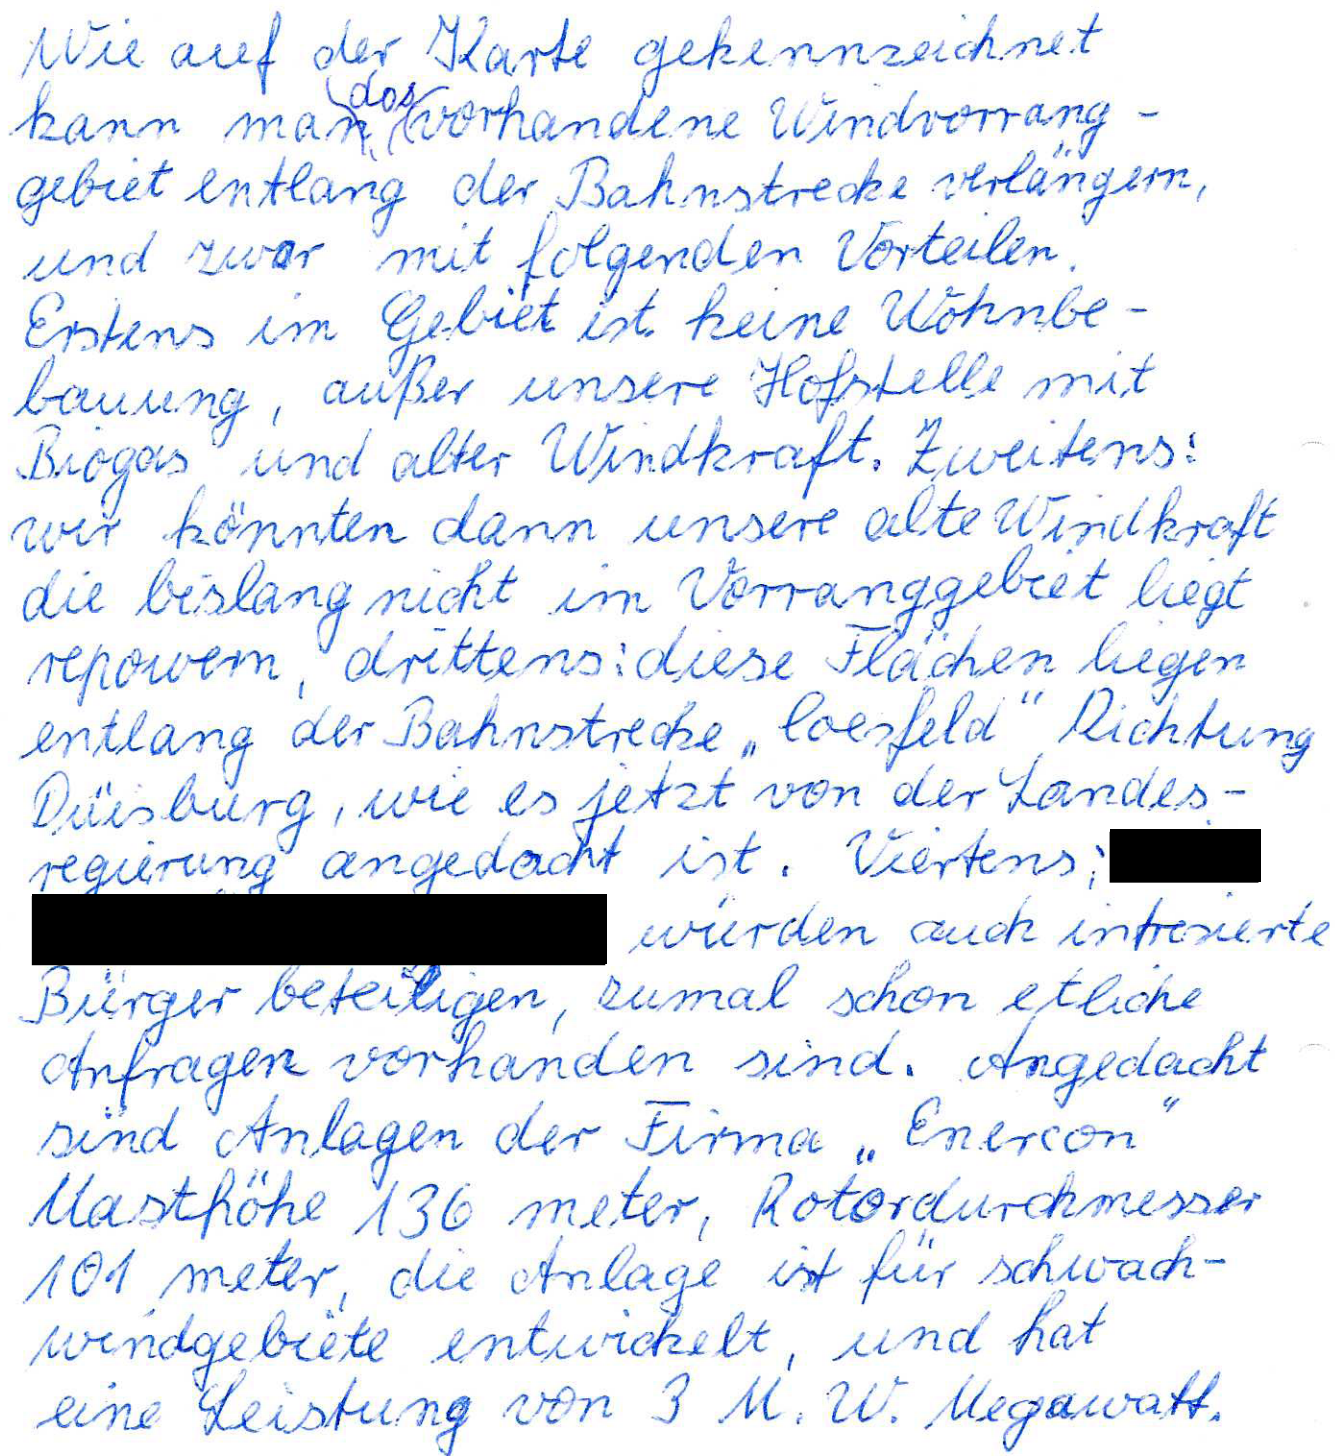 Wie auf der Karte gekennzeichnet
kann man das vorhandene Windvorrang-
gebiet entlang der Bahnstrecke verlängern,
und zwar mit folgenden Vorteilen.
Erstens im Gebiet ist keine Wohnbe-
bauung, außer unsere Hofstelle mit
Biogas und alter Windkraft. Zweitens:
wir könnten dann unsere alte Windkraft
die bislang nicht im Vorranggebiet liegt
repowern, drittens: diese Flächen liegen
entlang der Bahnstrecke „Coesfeld" Richtung
Duisburg, wie es jetzt von der Landes-
regierung angedacht ist. Viertens:
würden auch intresierte
Bürger beteiligen, zumal schon etliche
Anfragen vorhanden sind. Angedacht
sind Anlagen der Firma „Enercon"
Masthöhe 136 meter, Rotordurchmesser
101 meter, die Anlage ist für schwach-
windgebiete entwickelt, und hat
eine Leistung von 3 M. W. Megawatt.